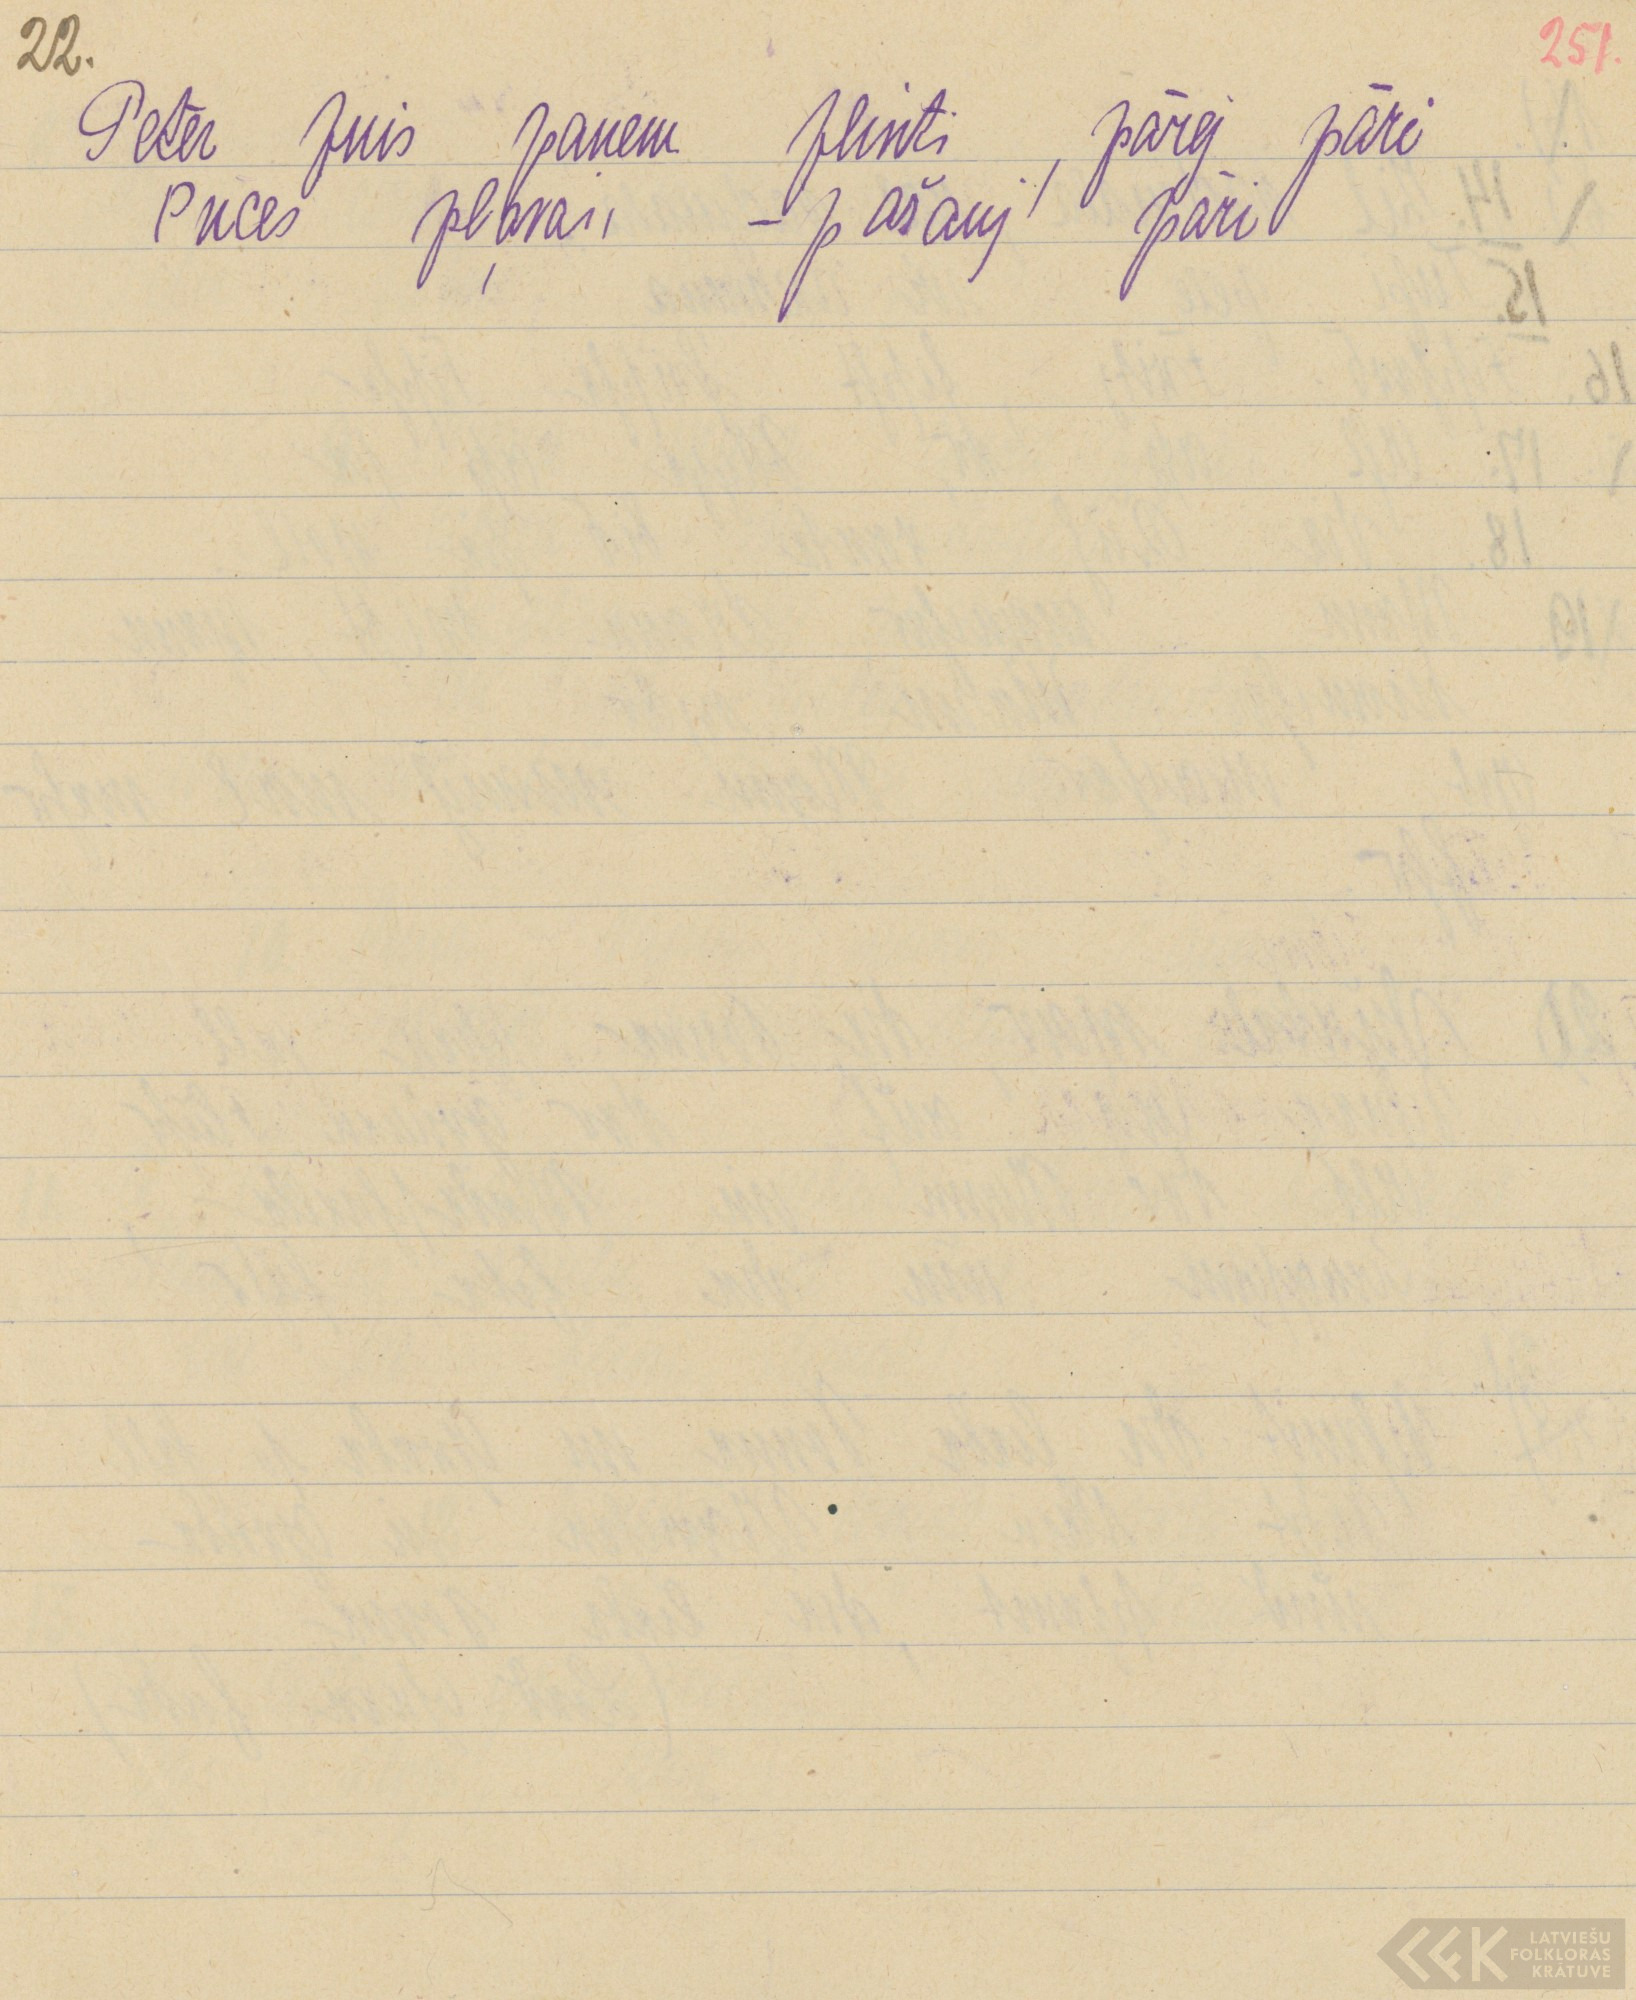 22.
251.
Peter puis panem plinti, pārej pāri
Puces pļavai, – pašauj pāri
LATVIEŠU
FOLKLORAS
KRĀTUVE